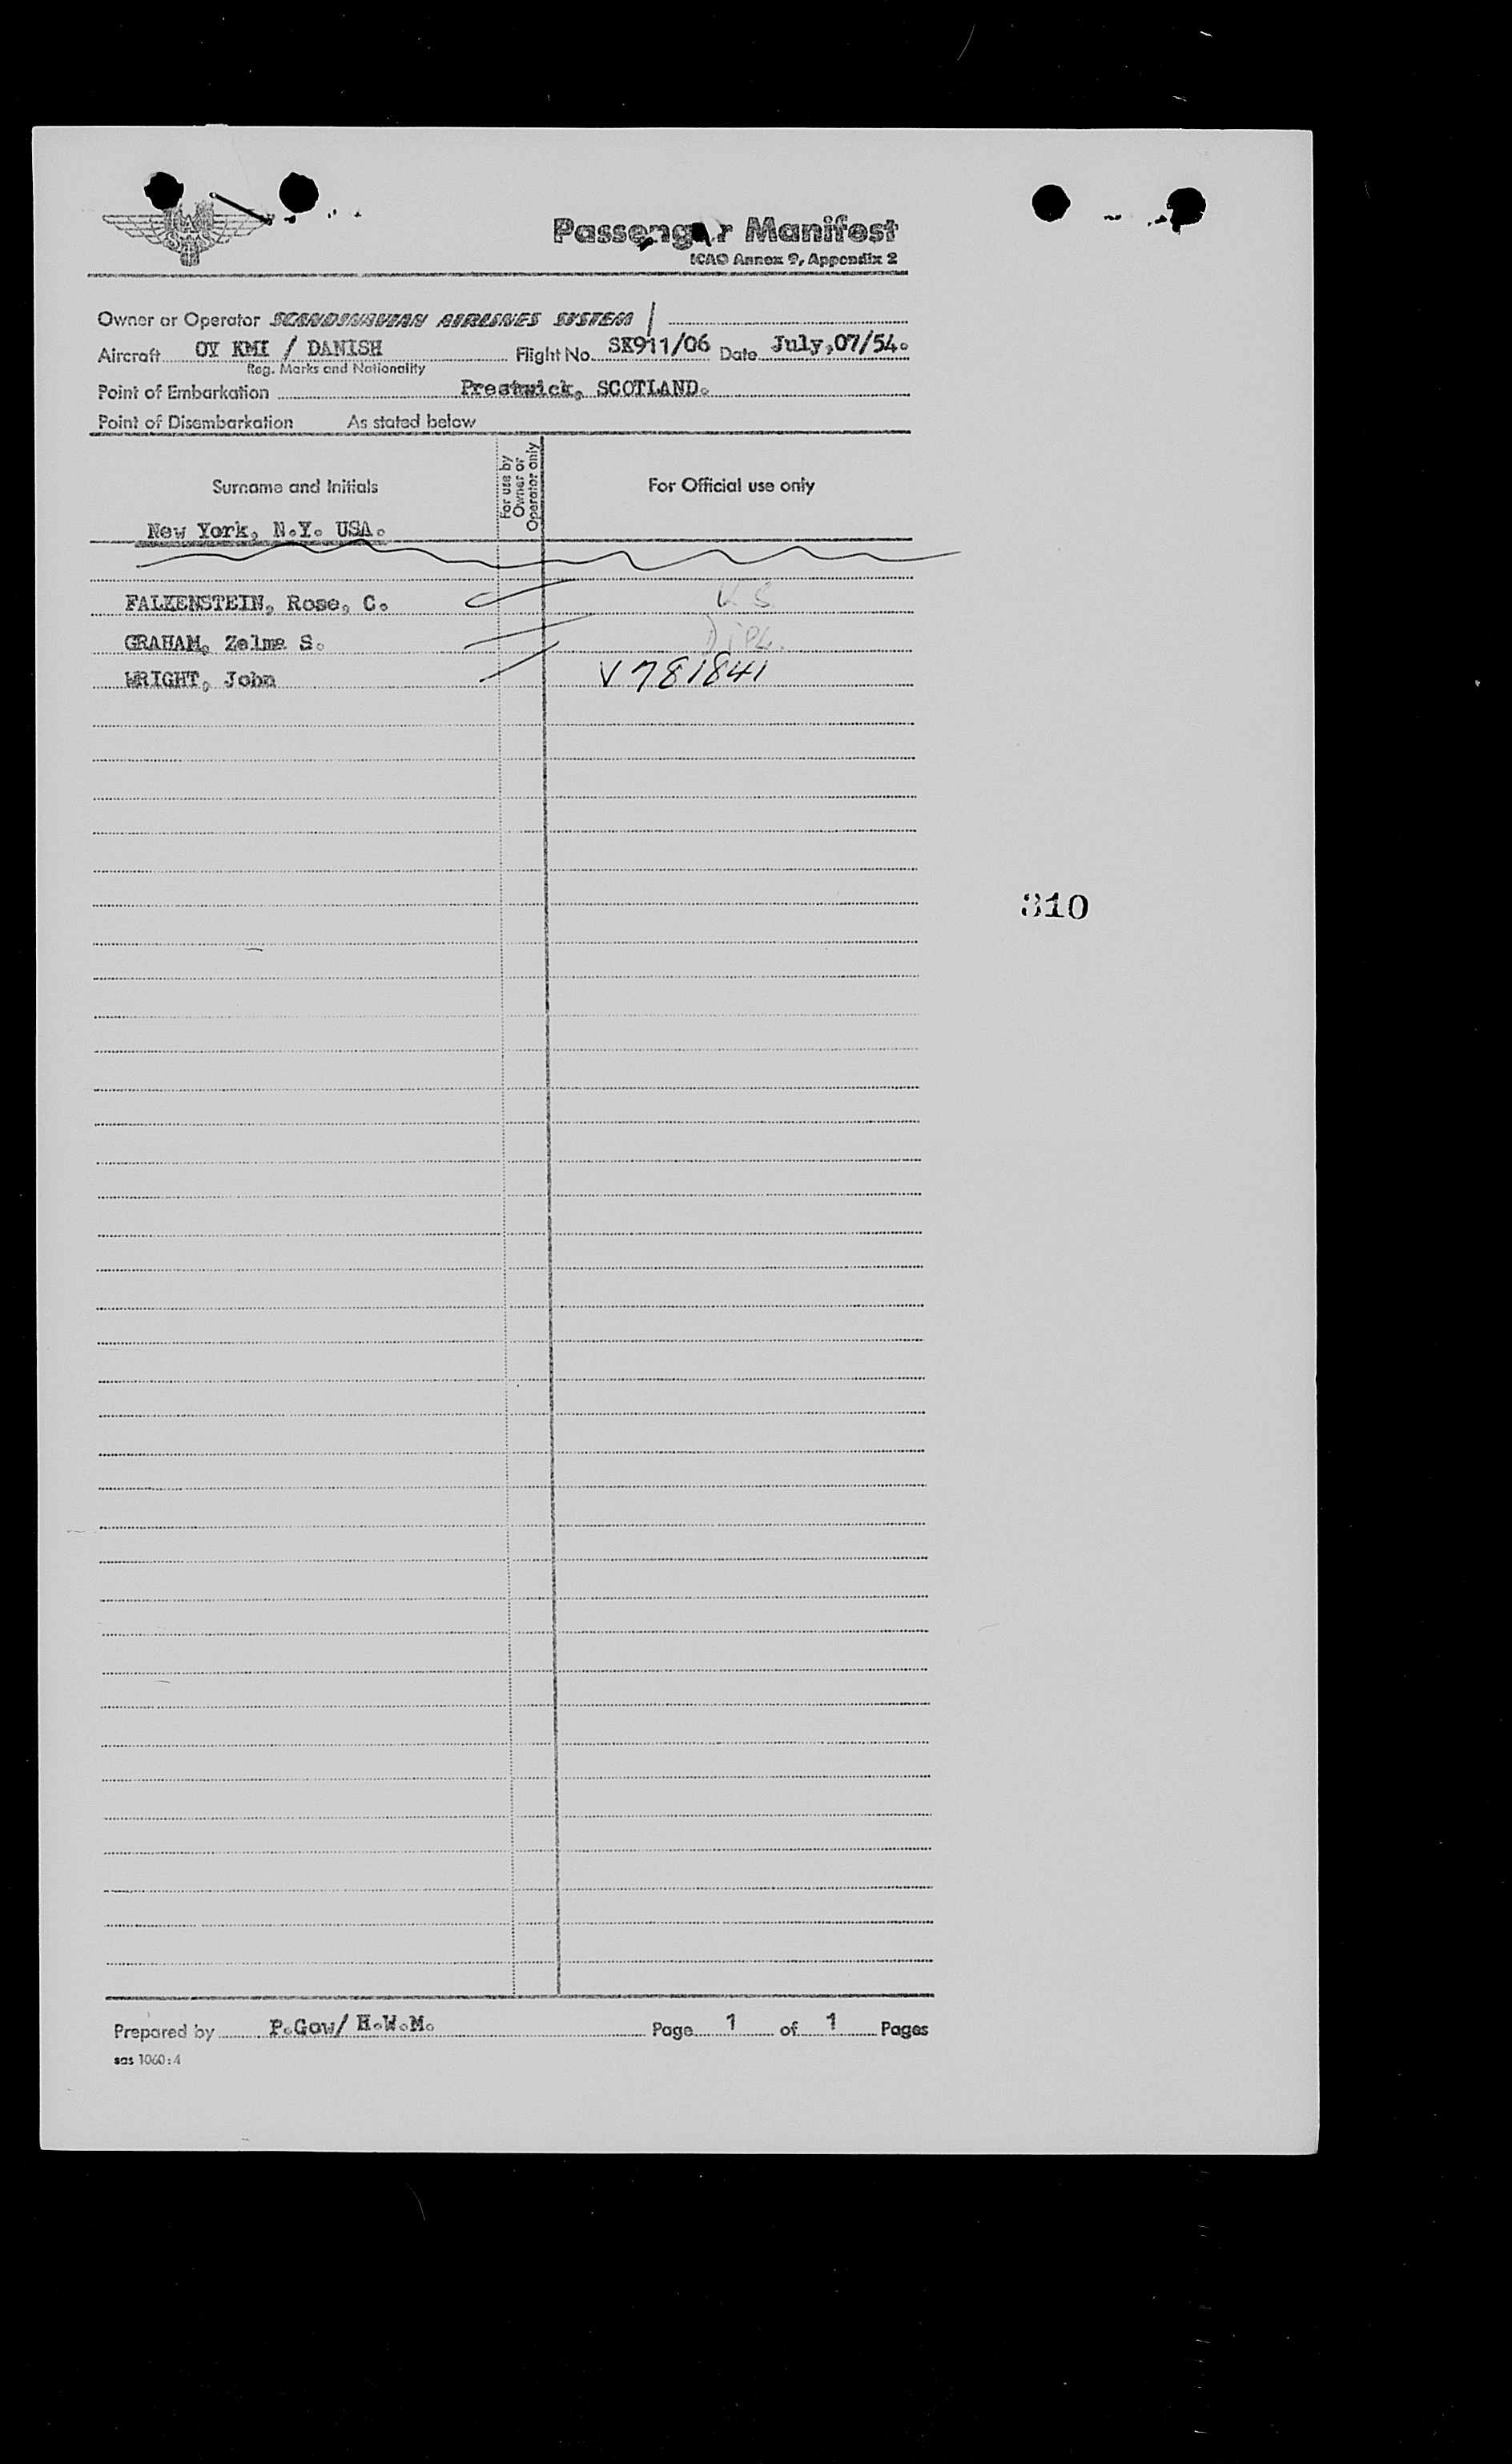 SAS
Passenger Manifest
ICAO Annex 9, Appendix 2
Owner or Operator SCANDINAVIAN AIRLINES SYSTEM
Aircraft OY KMI / DANISH Flight No. SK911/06 Date July,07/54.
Reg. Marks and Nationality
Point of Embarkation Prestwick, SCOTLAND.
Point of Disembarkation As stated below
Surname and Initials
For use by Owner or Operator only
For Official use only
New York, N.Y. USA.
FALKENSTEIN, Rose, C.
GRAHAM, Zelma S. Dipl.
WRIGHT, John V781841
310
Prepared by P.Gow/ H.W.M. Page 1 of 1 Pages
sas 1060:4